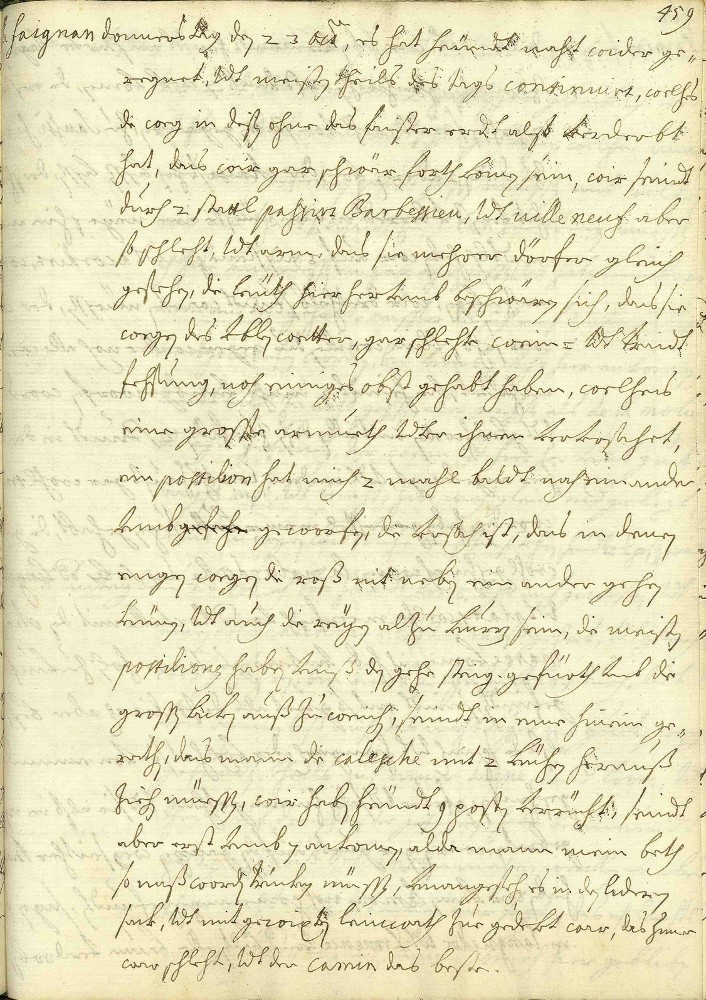 459
faignan donnerstag den 23 octr, es hat heündt nacht wider ge„
regnet, Undt meisten theils des tags continuirt, welches
die weg in disen ohne das faister erdt also verderbt
hat, das wir gar schwär forth komen sein, wir seindt
durch 2 stattl passirt Barbessieu, Undt ville neuf aber
so schlecht, Undt arm, das sie mehrer dörfer gleich
gesehen, die leüth hier herUmb beschwären sich, das sie
wegen des Ublen wetter, gar schlechte wein= Undt traidt
fechsung, noch einiges obst gehabt haben, welches
eine grosse armueth Unter ihnen verursachet,
ein postilion hat mich 2 mahl baldt nach einander
Umb geworfen, die Ursach ist, das in denen
engen wegen die roß nit neben ein ander gehen
künen, Undt auch die reihen alzu kurz sein, die meisten
postilionen haben Uns den gehe steig geführth Umb die
grossen lacken auß zu weichen, seindt in eine hinein ge„
rathen, das mann die calesche mit 2 kühen herauß
ziehen müessen, wir haben heündt 9 posten verricht, seindt
aber erst Umb 7 ankomen, alda mann mein beth
so naß worden trücknen müessen, Unangesehen es in den lideren
sack, Undt mit gewixten leinwath zue gedeckt war, das zimer
war schlecht, Undt der camin das beste.